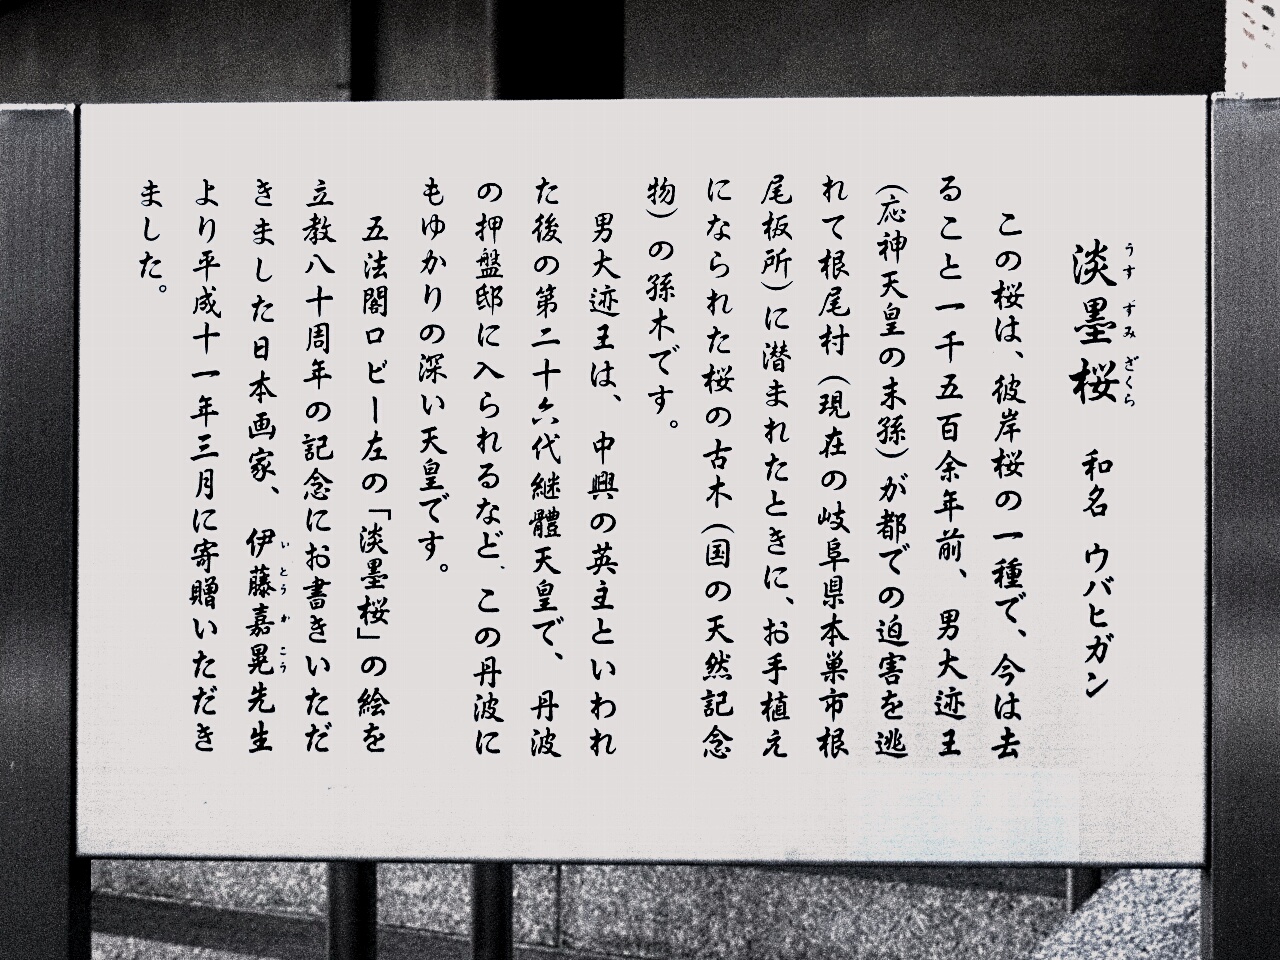 淡墨桜 和名 ウバヒガン
うすずみざくら
この桜は、彼岸桜の一種で、今は去
ること一千五百余年前、男大迹王
(応神天皇の末孫)が都での迫害を逃
れて根尾村(現在の岐阜県本巣市根
尾板所)に潜まれたときに、お手植え
になられた桜の古木(国の天然記念
物)の孫木です。
男大迹王は、中興の英主といわれ
た後の第二十六代継體天皇で、丹波
の押盤邸に入られるなど、この丹波に
もゆかりの深い天皇です。
五法閣ロビー左の「淡墨桜」の絵を
立教八十周年の記念にお書きいただ
きました日本画家、伊藤嘉晃先生
いとうかこう
より平成十一年三月に寄贈いただき
ました。